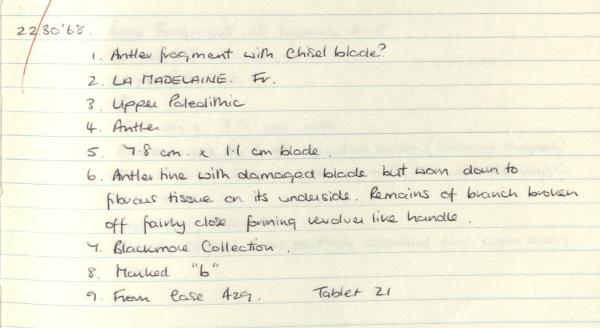 2230'68.
1. Antler fragment with chisel blade?
2. LA MADELAINE. Fr.
3. Upper Paleolithic
4. Antler
5. 7.8 cm. x 1.1 cm blade.
6. Antler tine with damaged blade but worn down to
fibrous tissue on its underside. Remains of branch broken
off fairly close forming revolver like handle.
7. Blackmore Collection.
8. Marked "b"
9. From Case A29. Tablet 21